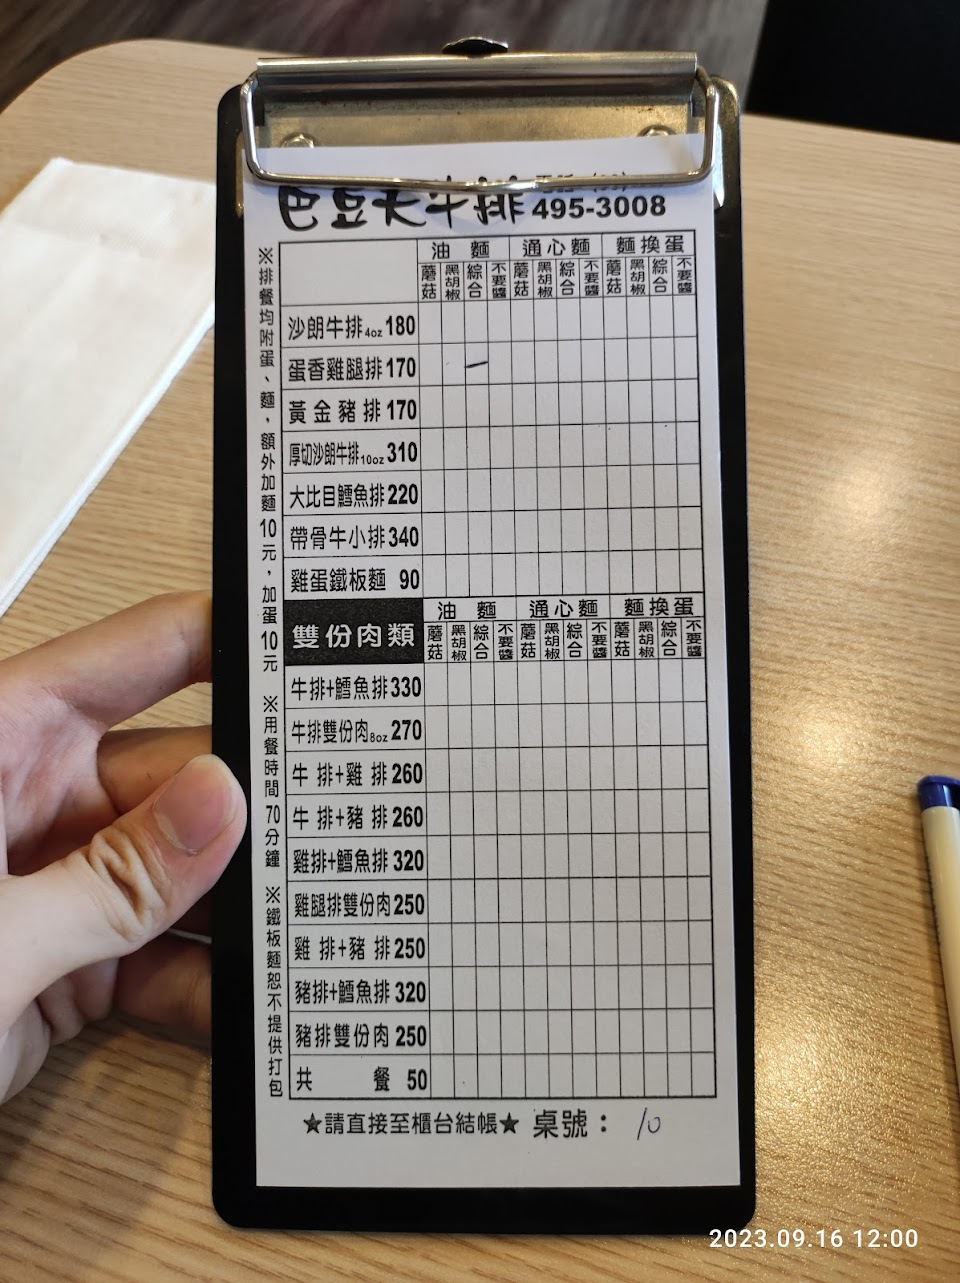 巴豆夭牛排 495-3008
油麵 通心麵 麵換蛋
蘑菇 黑胡椒 綜合 不要醬 蘑菇 黑胡椒 綜合 不要醬 蘑菇 黑胡椒 綜合 不要醬
沙朗牛排4oz 180
蛋香雞腿排 170
黃金豬排 170
厚切沙朗牛排10oz 310
大比目鱈魚排 220
帶骨牛小排 340
雞蛋鐵板麵 90
雙份肉類 油麵 通心麵 麵換蛋
蘑菇 黑胡椒 綜合 不要醬 蘑菇 黑胡椒 綜合 不要醬 蘑菇 黑胡椒 綜合 不要醬
牛排+鱈魚排 330
牛排雙份肉8oz 270
牛排+雞排 260
牛排+豬排 260
雞排+鱈魚排 320
雞腿排雙份肉 250
雞排+豬排 250
豬排+鱈魚排 320
豬排雙份肉 250
共餐 50
★請直接至櫃台結帳★ 桌號： 10
※排餐均附蛋、麵，額外加麵10元，加蛋10元 ※用餐時間70分鐘 ※鐵板麵恕不提供打包
2023.09.16 12:00